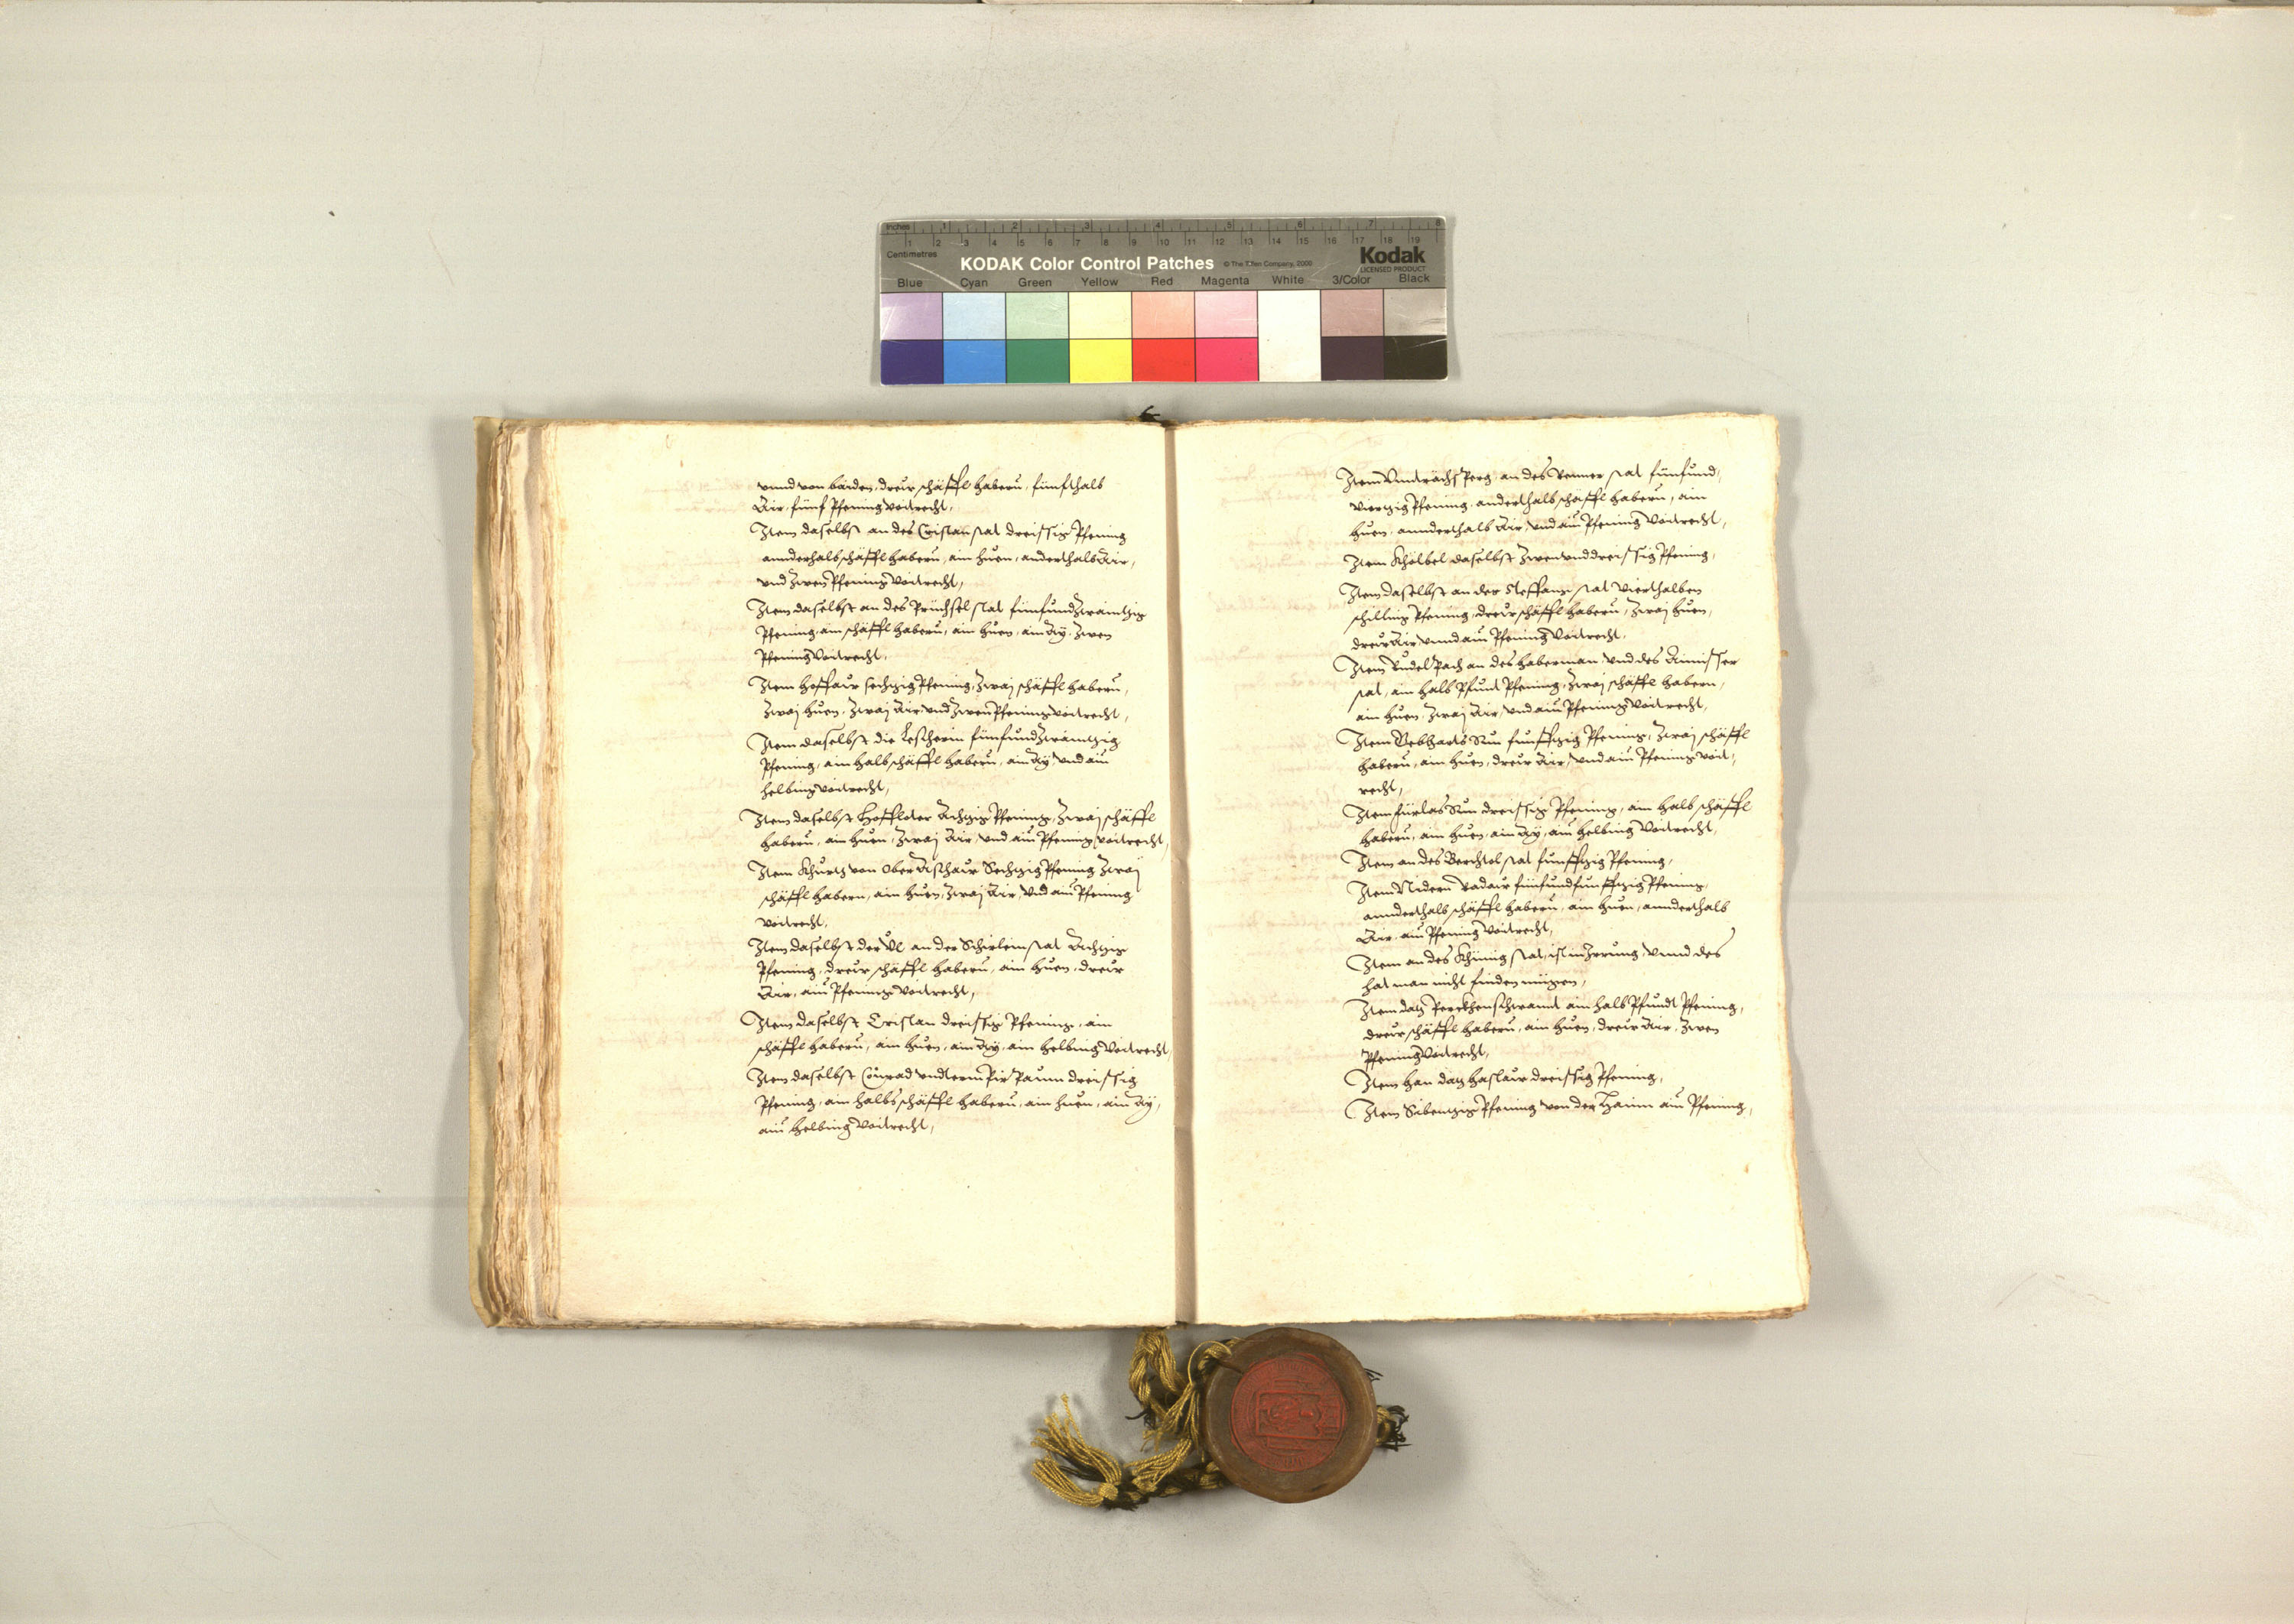 Inches 1 2 3 4 5 6 7 8
1 2 3 4 5 6 7 8 9 10 11 12 13 14 15 16 17 18 19
Centimetres
KODAK Color Control Patches © The Tiffen Company, 2000 Kodak
LICENSED PRODUCT
Blue Cyan Green Yellow Red Magenta White 3/Color Black
vnnd von baiden, dreur schäffl habern, fünfthalb
Air, fünf Pfening voitrecht,
Item daselbst an des Cristan stat dreissig Pfening
annderhalb schäffl habern, ain huen, anderthalb Air,
vnd zwen Pfening voitrecht,
Item daselbst an des Prüchsel stat fünfundzwaintzig
Pfening, ain schäffl habern, ain huen, ain Ay, zwen
Pfening voitrecht,
Item Hoffair sechzig Pfening, zwaj schäffl habern,
zwaj huen, zwaj Air vnd zwen Pfening voitrecht,
Item daselbst die Lescherin fünfundzwaintzig
Pfening, ain halb schäffl habern, ain Ay, vnd ain
helbing voitrecht,
Item daselbst Hoffloter Achtzig Pfening, zwaj schäffl
habern, ain huen, zwaj Air, vnd ain Pfening voitrecht,
Item Khurtz von Ober Aschair Sechzig Pfening zwaj
schäffl habern, ain huen, zwaj Air, vnd ain Pfening
voitrecht,
Item daselbst der Vl an der Schirlein stat Achtzig
Pfening, dreur schäffl habern, ain huen, dreur
Air, ain Pfening voitrecht,
Item daselbst Cristan dreissig Pfening, ain
schäffl habern, ain huen, ain Ay, ain helbing voitrecht,
Item daselbst Conrad vnnterm Pir Paum dreissig
Pfening, ain halb schäffl habern, ain huen, ain Ay,
ain helbing voitrecht,
Item Vndrächsperg an des Renner stat fünfund
viertzig Pfening, anderthalb schäffl habern, ain
huen, annderthalb Air, vnd ain Pfening voitrecht,
Item Khölbel daselbst zwenunddreissig Pfening,
Item daselbst an der Steffans stat vierthalben
schilling Pfening, dreur schäffl habern, zwaj huen,
dreur Air vnnd ain Pfening voitrecht,
Item Rudelpach an des haberman vnd des
stat, ain halb Pfunt Pfening, zwaj schäffl habern,
ain huen, zwaj Air, vnd ain Pfening voitrecht,
Item Gebharts Sun funfftzig Pfening, zwaj schäffl
habern, ain huen, dreur Air, vnd ain Pfening voit,
recht,
Item fürlas Sun dreissig Pfening, ain halb schäffl
habern, ain huen, ain Ay, ain helbing voitrecht,
Item an des Berchtol stat funfftzig Pfening,
Item Nidern Radair fünfundfunfftzig Pfening,
annderthalb schäffl habern, ain huen, annderthalb
Air, ain Pfening voitrecht,
Item an des Khünig stat, ist in Irrung, vnnd des
hat man nicht finden mügen,
Item datz Perckhenschwamt ain halb Pfundt Pfening,
dreur schäffl habern, ain huen, dreur Air, zwen
Pfening voitrecht,
Item Han datz Haslair dreissig Pfening,
Item Sibentzig Pfening von der Haim ain Pfening,